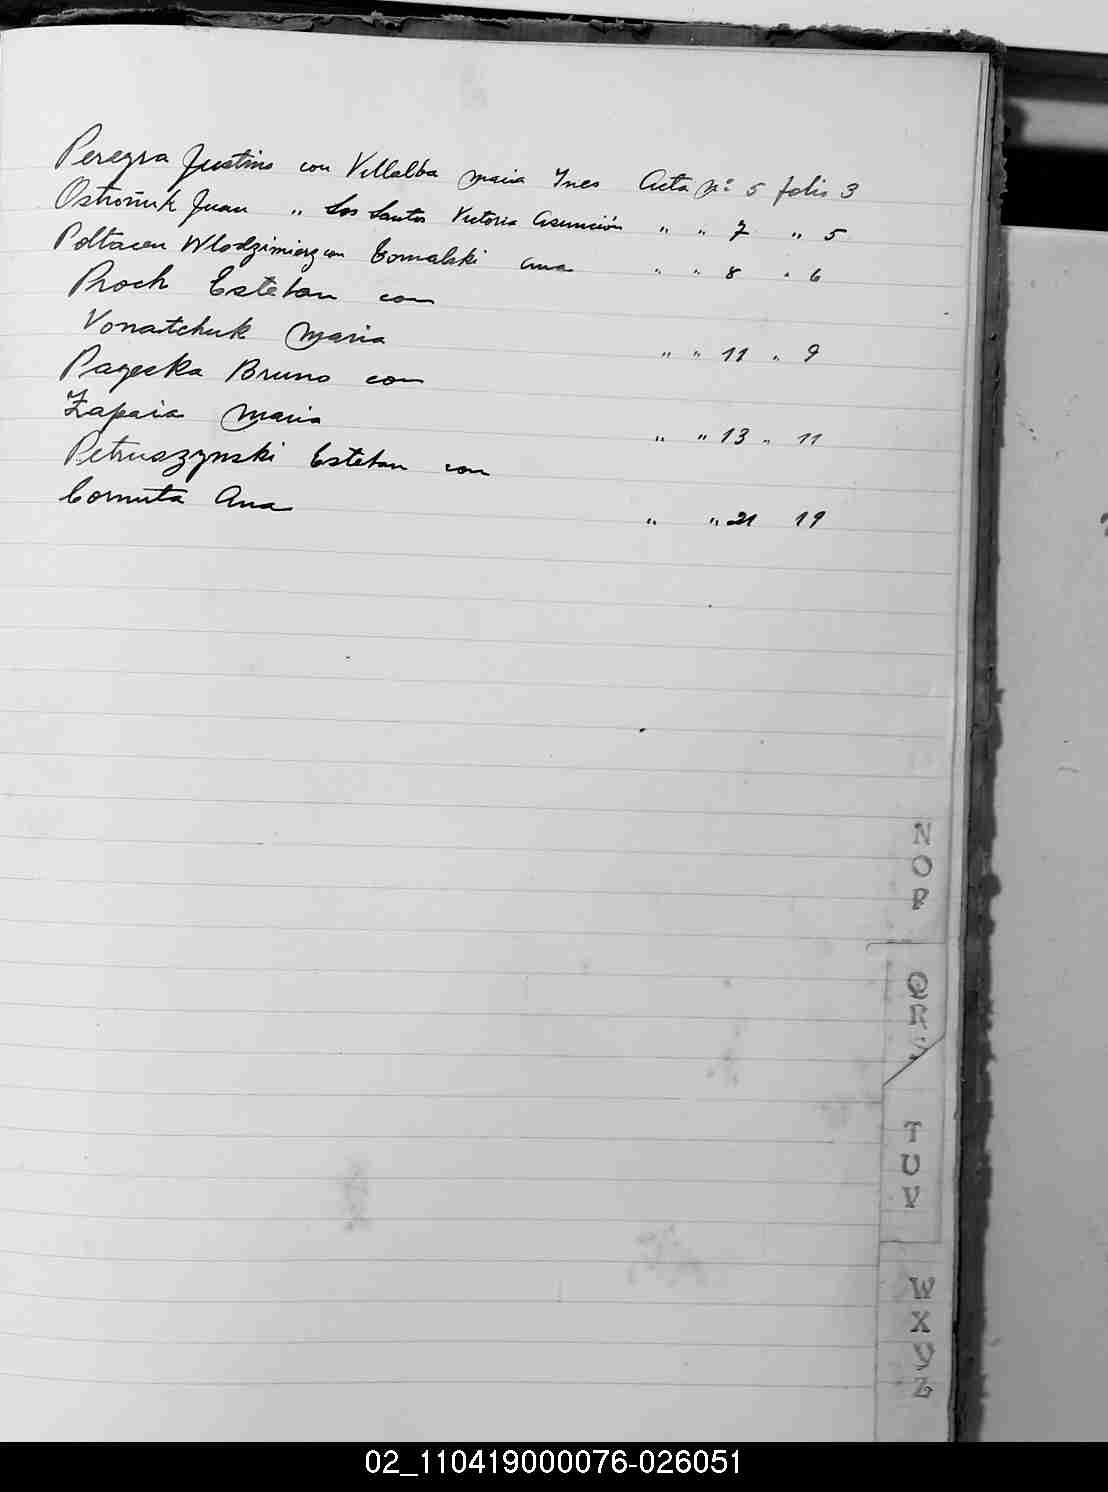 Pereyra Justino con Villalba Maria Ines Acta Nº 5 folio 3
Ostroñuk Juan " Los Santos Victoria Asunción " " 7 " 5
Poltacen Wlodzimierz con Comalski Ana " " 8 " 6
Proch Esteban con
Vonatchuk Maria " " 11 " 9
Pageska Bruno con
Zapaia Maria " " 13 " 11
Petruszynski Esteban con
Cornuta Ana " " 21 19
N
O
P
Q
R
S
T
U
V
W
X
Y
Z
02_110419000076-026051